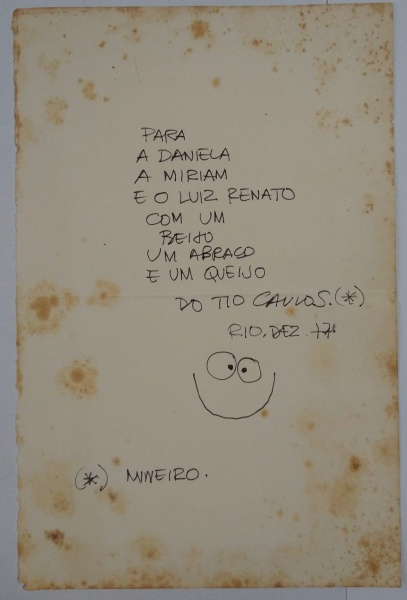 PARA
A DANIELA
A MIRIAM
E O LUIZ RENATO
COM UM
BEIJO
UM ABRAÇO
E UM QUEIJO
DO TIO CAULOS.(*)
RIO, DEZ.
(*) MINEIRO.